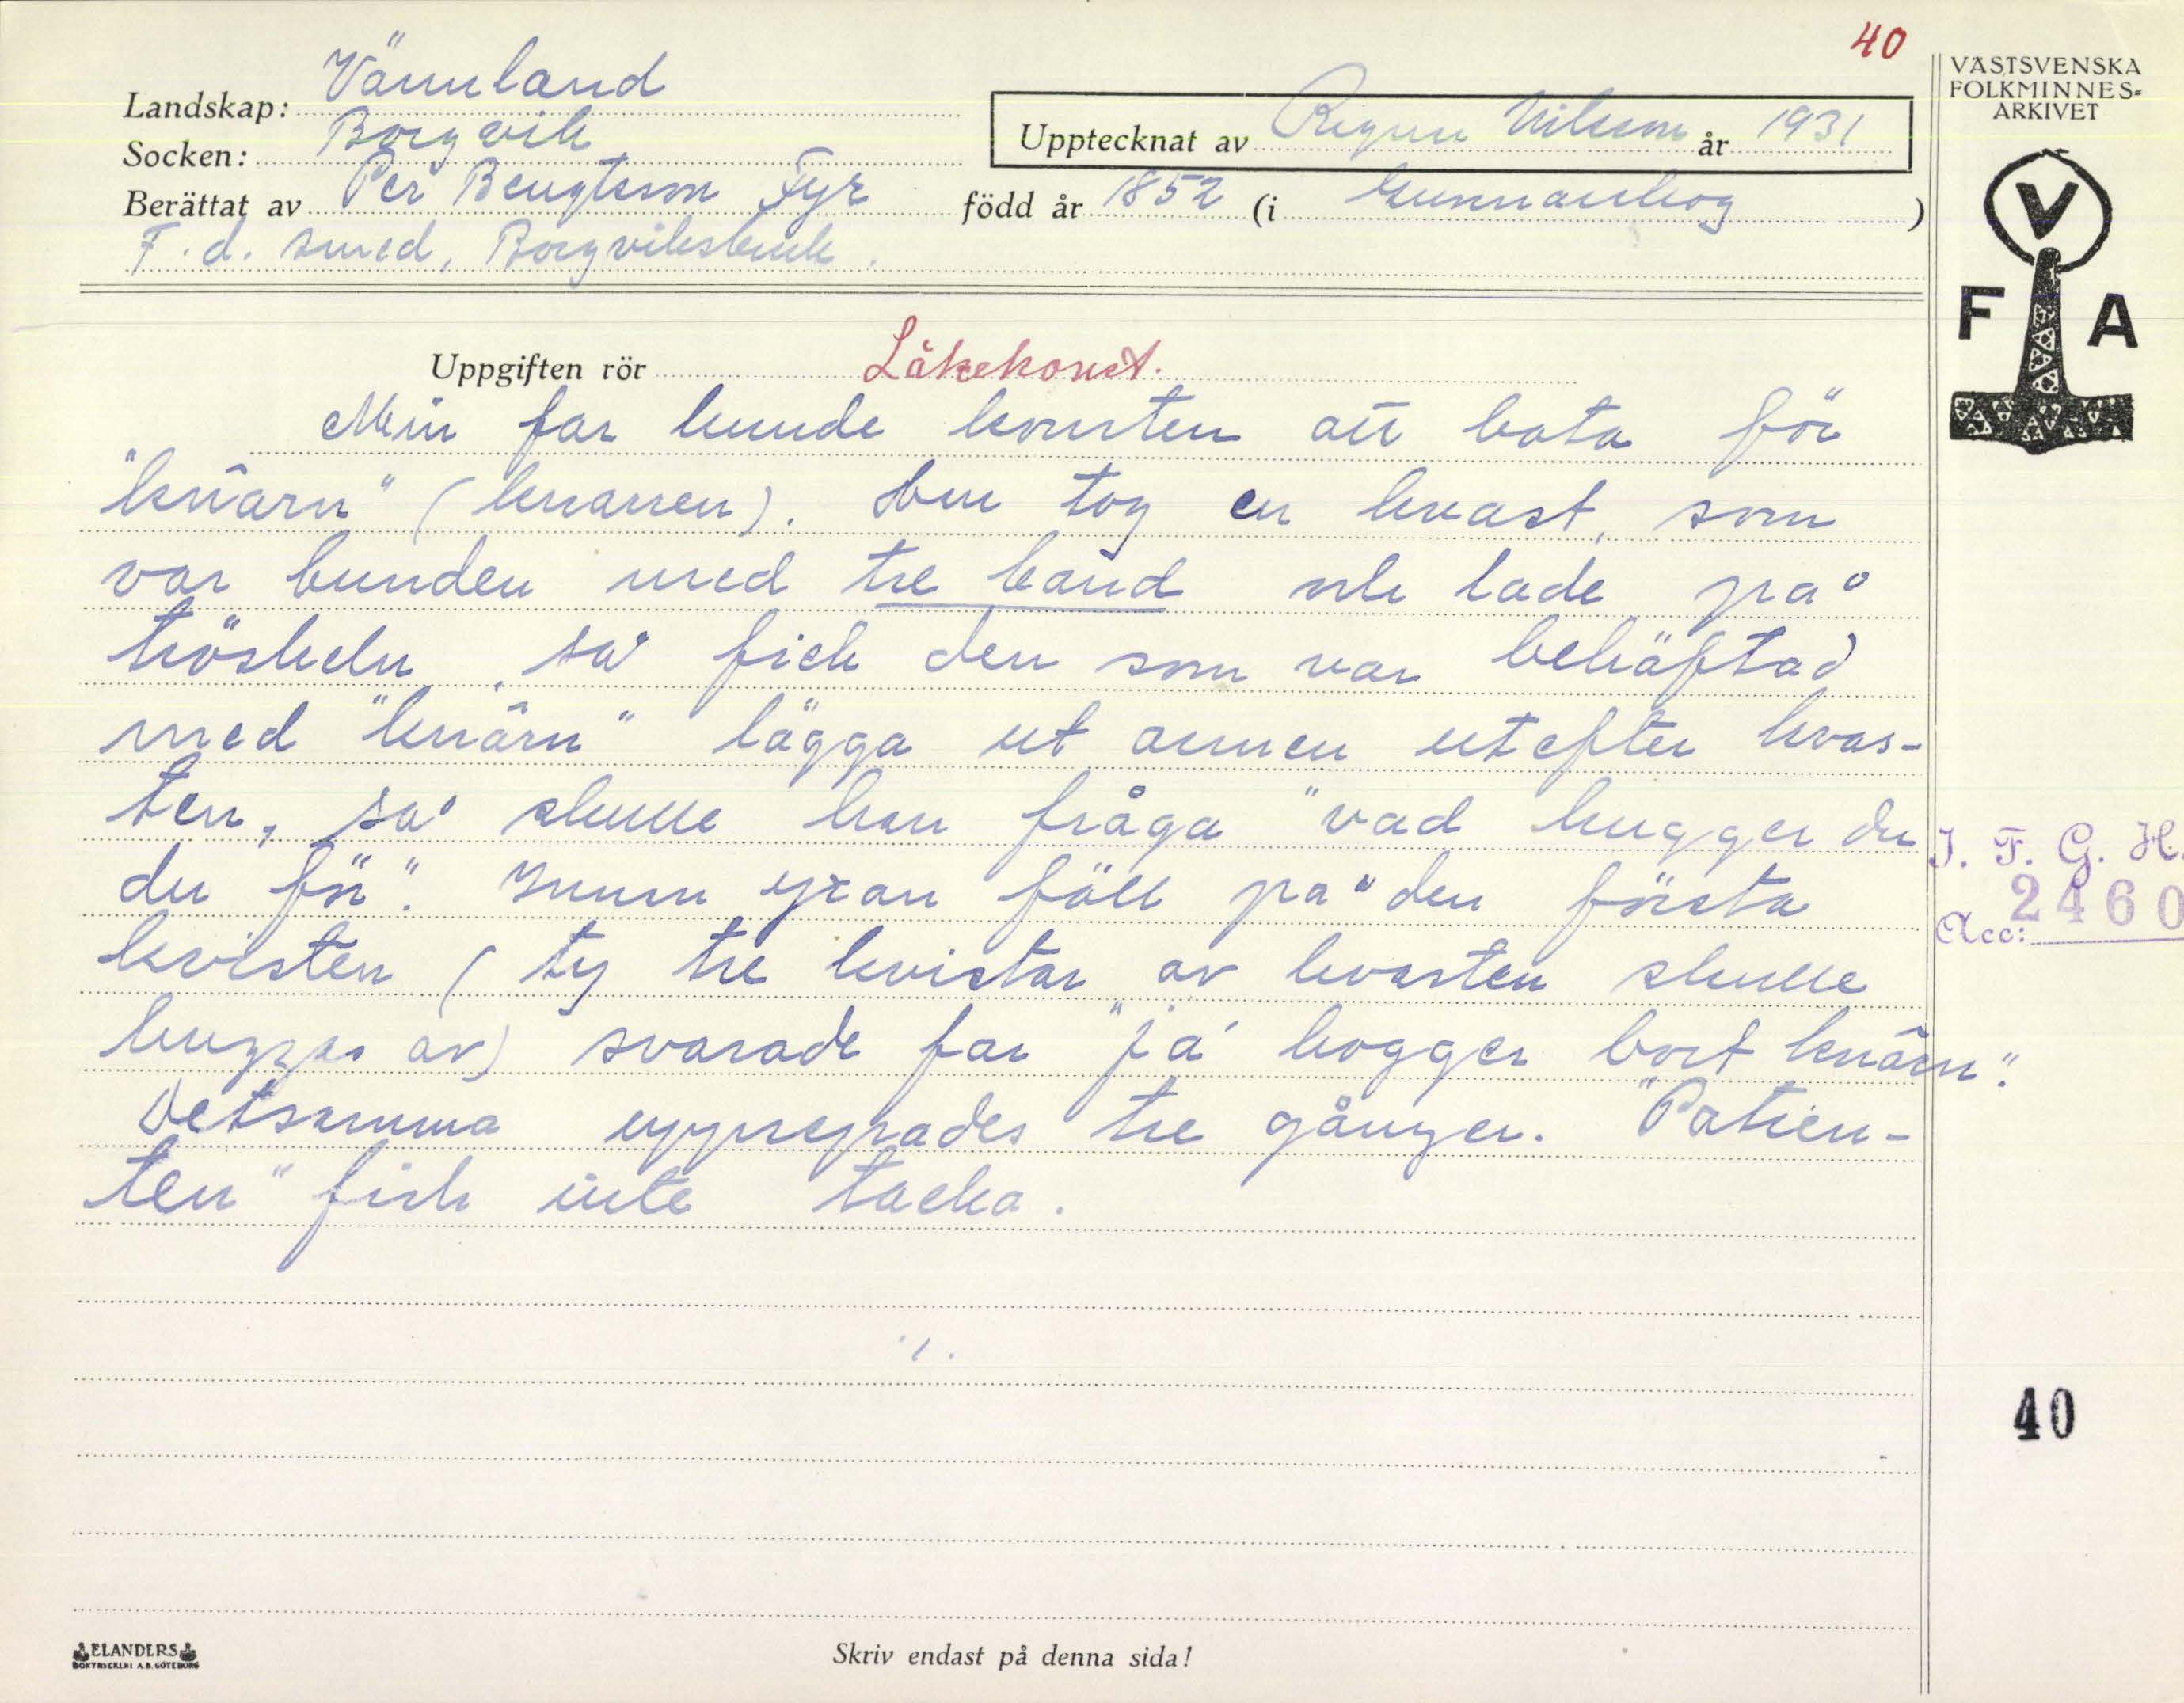 40
VÄSTSVENSKA
FOLKMINNES-
ARKIVET
Landskap: Värmland
Socken: Borgvik
Upptecknat av Ragnar Nilsson år 1931
Berättat av Per Bengtsson Fyr född år 1852 (i Gunnarskog)
F.d. smed, Borgviksbruk.
V
F A
Uppgiften rör Läkekonst.
Min far kunde konsten att bota för
"knârn" (knarren). Han tog en kvast, som
var bunden med tre band och lade på
tröskeln, så fick den som var behäftad
med "knârn" lägga ut armen utefter kvas-
ten, så skulle han fråga "vad hugger du
du för". Innan yxan föll på den första
kvisten (ty tre kvistar av kvasten skulle
huggas av) svarade far "ja hogger bort knârn".
Detsamma upprepades tre gånger. "Patien-
ten" fick inte tacka.
I. F. G. H.
2460
Acc:
40
ELANDERS
BOKTRYCKERI A.B. GÖTEBORG
Skriv endast på denna sida!